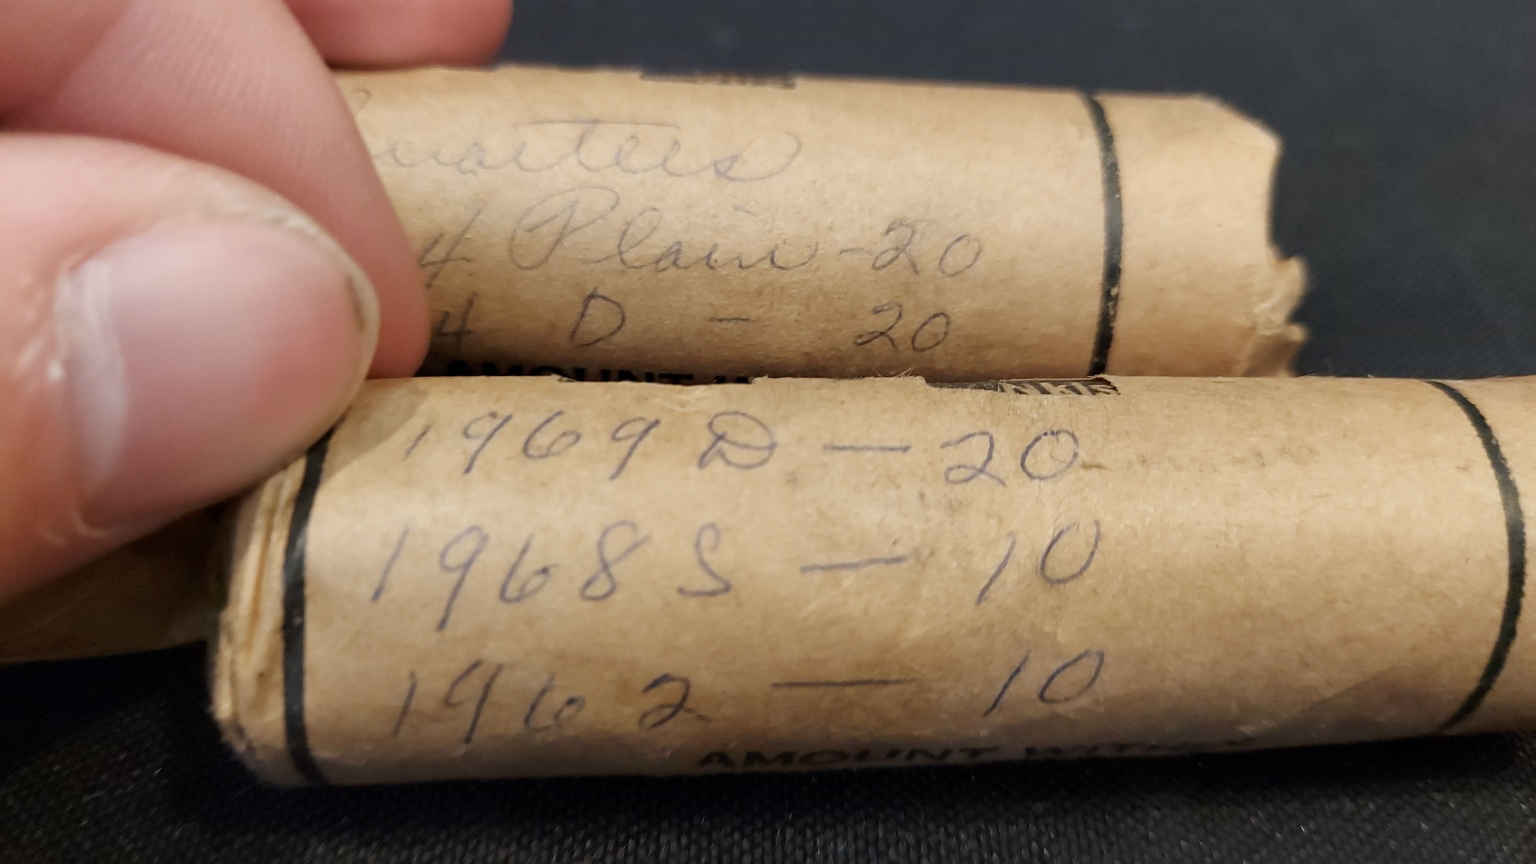 Quarters
4 Plain - 20
4 D - 20
AMOUNT
1969 D — 20
1968 S — 10
1962 — 10
AMOUNT WITH